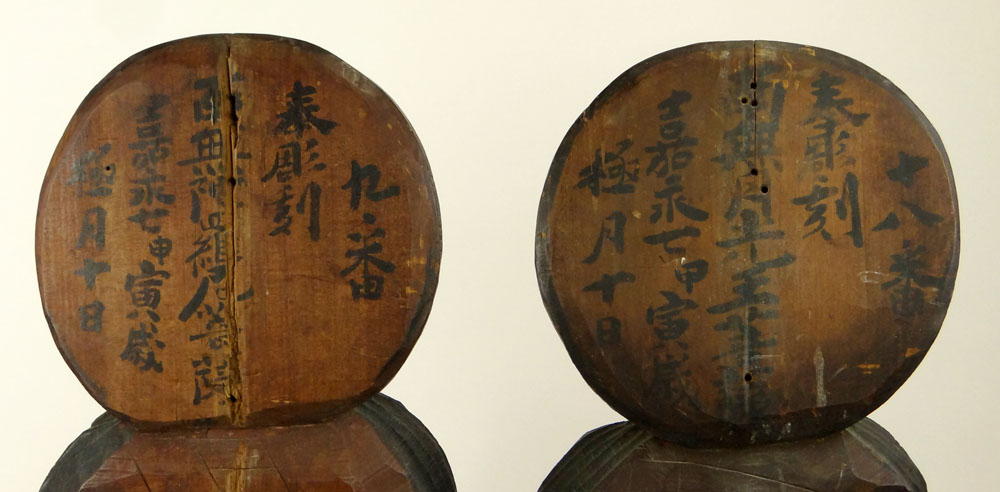 九番
奉彫刻
南無陀羅尼菩薩
嘉永七甲寅歳
極月十日
十八番
奉彫刻
南無月光王菩薩
嘉永七甲寅歳
極月十日